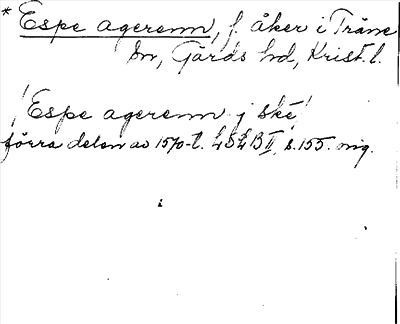 * Espe agerenn, f. åker i Träne
sn, Gärds hd, Krist. l.
"Espe agerenn j ske"
förra delen av 1570-t. LSLB II, s. 155. mg.